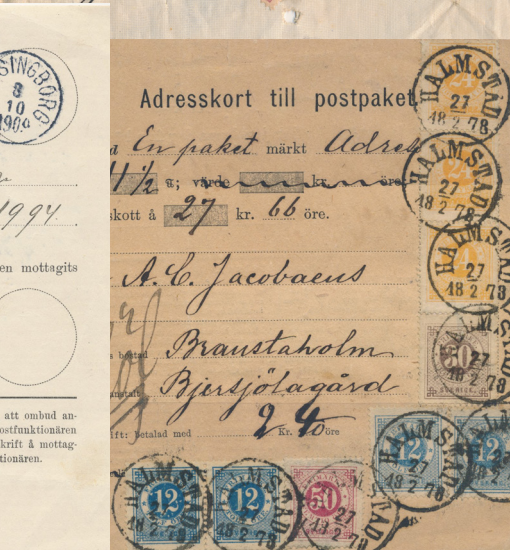 SINGBORG
8
10
190
1994.
en mottagits
att ombud an-
ostfunktionären
krift å mottag-
tionären.
Adresskort till postpaket
En paket märkt Adress
4 1/2 ; värde kr. öre.
skott å 27 kr. 66 öre.
A. C. Jacobaeus
Braustaholm
Bjersjölagård
betalad med 2 Kr. 40 öre
HALMSTAD
27
18 2 78
HALMSTAD
27
18 2 78
24
HALMSTAD
27
18 2 78
50
HALMSTAD
27
18 2 78
SVERIGE
12
HALMSTAD
27
18 2 78
12
12
HALMSTAD
27
18 2
12
HALMSTAD
27
18 2 78
50
HALMSTAD
27
18 2 78